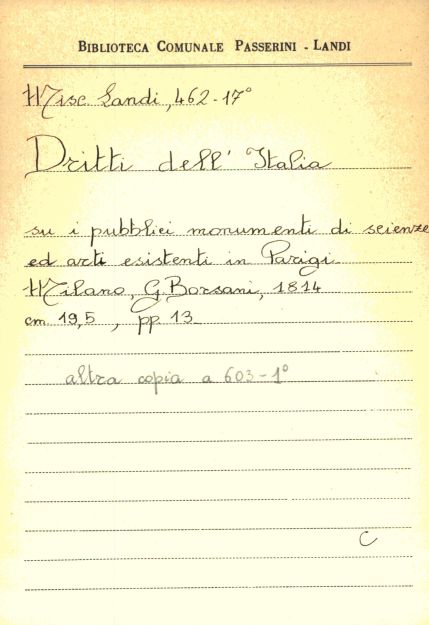 BIBLIOTECA COMUNALE PASSERINI - LANDI
Misc. Landi, 462-17°
Dritti dell' Italia
su i pubblici monumenti di scienze
ed arti esistenti in Parigi.
Milano, G. Borsani, 1814
cm. 19,5, pp. 13
altra copia a 603-1°
C